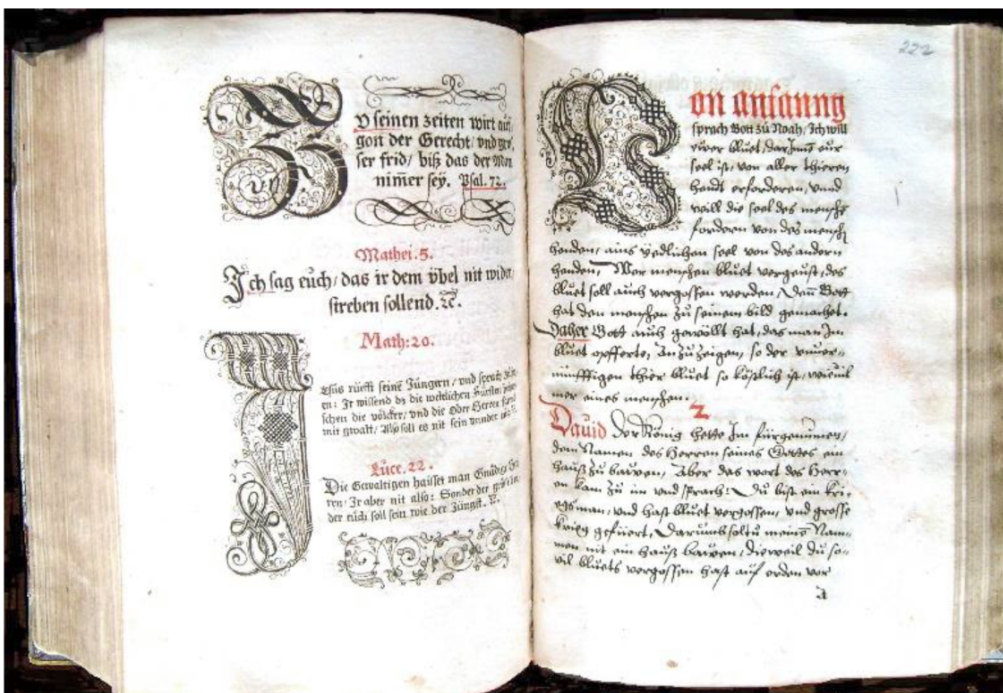 Zu seinen zeiten wirt auf
gon der Gerecht/ vnd gros
ser frid/ biß das der Mon
nimer sey. Psal. 72.
Mathei. 5.
Ich sag eüch/ das ir dem übel nit wider
streben sollend. ꝛc.
Math: 20.
Jesus rüefft seine Jüngern/ vnd sprach
en: Ir wissend dz die weltlichen Fürsten
schen die völcker/ vnd die Ober Herren
mit gwalt/ Also soll es nit sein vnnder
Luce. 22.
Die Gewaltigen haisset man Gnädig Her
ren: Ir aber nit also: Sonder der gröst
der eüch soll sein wie der Jüngst. ꝛc.
222
Von anfanng
sprach Gott zů Noah/ Ich will
ewer bluet/ darInn eur
seel ist/ von aller thieren
hendt erforderen/ vnnd
will die seel des mensche
forderen von des mensch
henden/ ains yedlichen seel von des andern
henden/ Wer menschen bluet vergeust/ des
bluet soll auch vergossen werden/ Dann Gott
hat den menschen zů seinem bild gemachet.
Daher Gott auch gewöllt hat/ das man Im
bluet opfferte/ anzůzeigen/ so der vnuer-
nunfftigen thier bluet so köstlich ist/ wieuil
mer aines menschen.
2
Dauid Der König hette Im fürgenumen/
dem Namen des Herren seines Gottes ein
hauß zů bawen/ Aber das wort des Herr-
en kam zů im vnd sprach: Du bist ein kri-
egs man/ vnd hast bluet vergossen/ vnd grosse
krieg gefüert/ Darumb soltu meinē Nam-
men nit ein Hauß bawen/ dieweil du so-
vil bluets vergossen hast auf erden vor